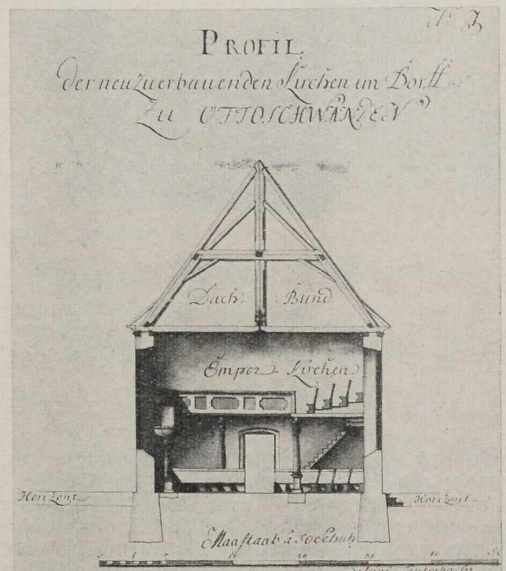 PROFIL
der neu zuerbauenden Kirchen im Dorff
Zu OTTOSCHWANDEN
Dach Bund
Empor Kirchen
Horizont Horizont
Maasstaab à Schuh